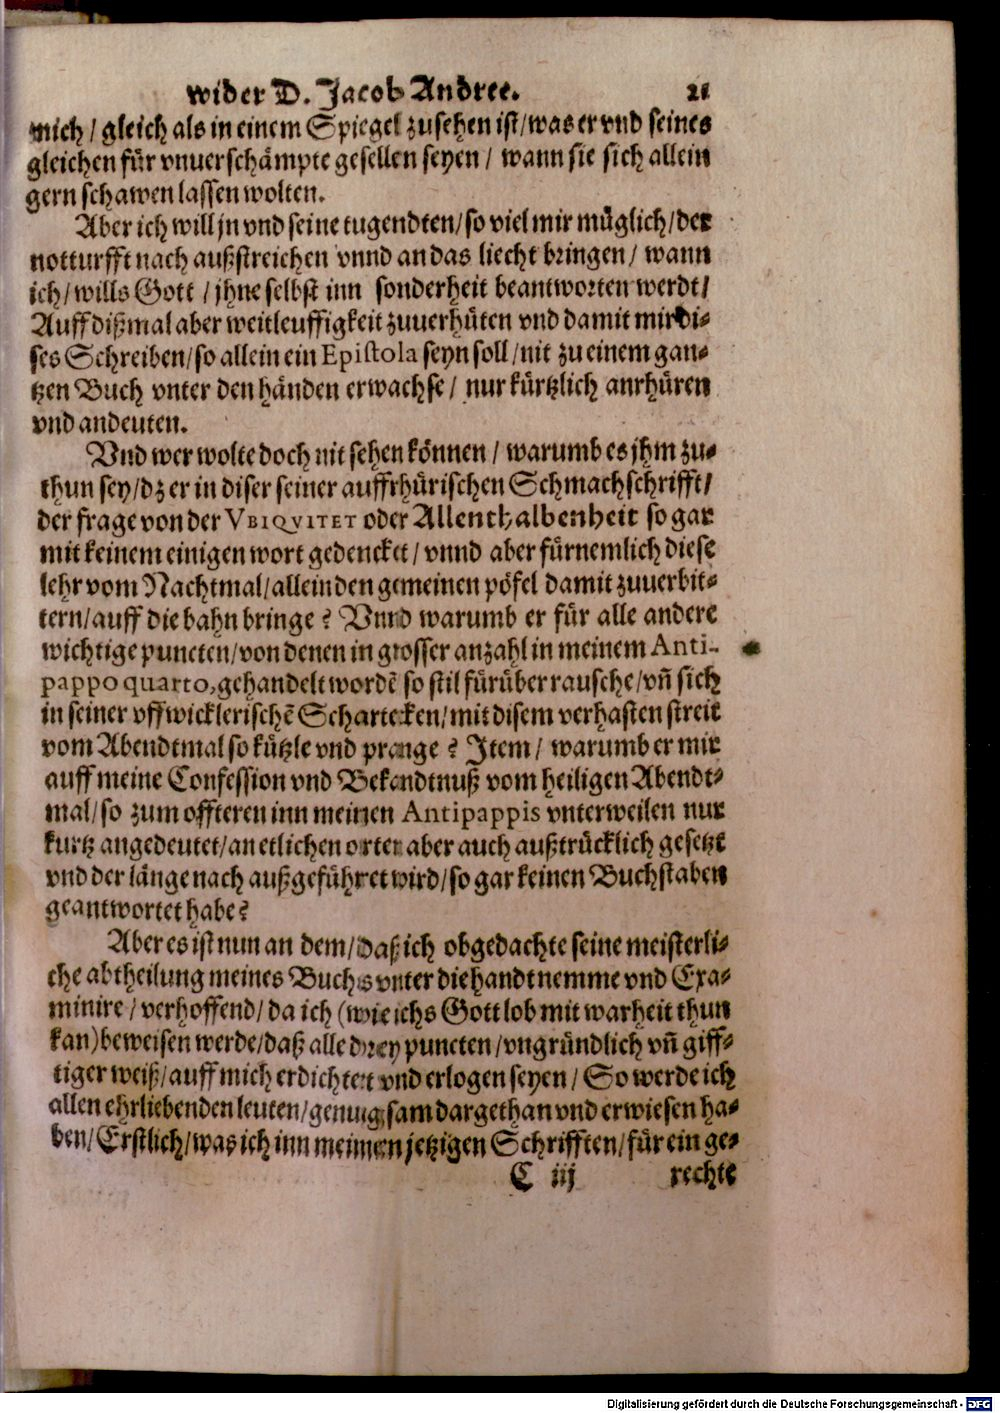 wider D. Jacob Andree. 21
mich / gleich als in einem Spiegel zusehen ist/was er vnd seines
gleichen für vnuerschämpte gesellen seyen / wann sie sich allein
gern schawen lassen wolten.
Aber ich will jn vnd seine tugendten/so viel mir müglich/der
notturfft nach außstreichen vnnd an das liecht bringen / wann
ich/wills Gott / jhne selbst inn sonderheit beantworten werdt/
Auff dißmal aber weitleuffigkeit zuuerhüten vnd damit mir di-
ses Schreiben/so allein ein Epistola seyn soll/nit zu einem gan-
tzen Buch vnter den händen erwachse / nur kürtzlich anrhüren
vnd andeuten.
Vnd wer wolte doch nit sehen können / warumb es jhm zu-
thun sey/dz er in diser seiner auffrhürischen Schmachschrifft/
der frage von der VBIQVITET oder Allenthalbenheit so gar
mit keinem einigen wort gedencket / vnnd aber fürnemlich diese
lehr vom Nachtmal/allein den gemeinen pöfel damit zuuerbit-
tern/auff die bahn bringe? Vnnd warumb er für alle andere
wichtige puncten/von denen in grosser anzahl in meinem Anti-
pappo quarto, gehandelt wordẽ so stil fürüber rausche/vñ sich
in seiner vffwicklerischẽ Schartecken/mit disem verhasten streit
vom Abendtmal so kützle vnd prange? Item / warumb er mir
auff meine Confession vnd Bekandtnuß vom heiligen Abendt-
mal/so zum offteren inn meinen Antipappis vnterweilen nur
kurtz angedeutet/an etlichen orten aber auch außtrücklich gesetzt
vnd der länge nach außgeführet wird/so gar keinen Buchstaben
geantwortet habe?
Aber es ist nun an dem/daß ich obgedachte seine meisterli-
che abtheilung meines Buchs vnter die handt nemme vnd Exa-
minire / verhoffend/ da ich (wie ichs Gott lob mit warheit thun
kan) beweisen werde/daß alle drey puncten/vngründlich vñ giff-
tiger weiß/auff mich erdichtet vnd erlogen seyen / So werde ich
allen ehrliebenden leuten/genugsam dargethan vnd erwiesen ha-
ben/Erstlich/was ich inn meinen jetzigen Schrifften/für ein ge-
C iij rechte
Digitalisierung gefördert durch die Deutsche Forschungsgemeinschaft - DFG